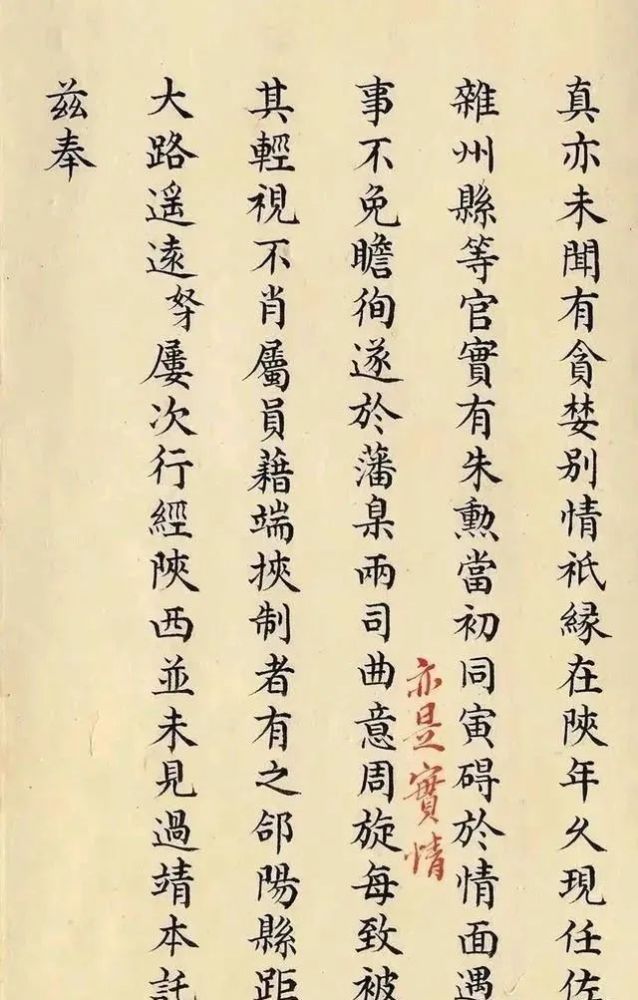 真亦未聞有貪婪別情祇緣在陝年久現任佐
雜州縣等官實有朱勲當初同寅碍於情面遇
亦是實情
事不免瞻徇遂於藩臬兩司曲意周旋每致被
其輕視不肖屬員藉端挾制者有之郃陽縣距
大路遥遠奴才屢次行經陝西並未見過靖本託
兹奉